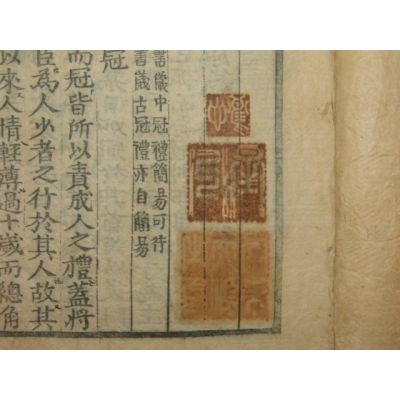 書儀中冠禮簡易可行
書儀古冠禮亦自簡易
冠
而冠皆所以責成人之禮蓋將
臣爲人少者之行於其人故其
以來人情輕薄過十歲而總角